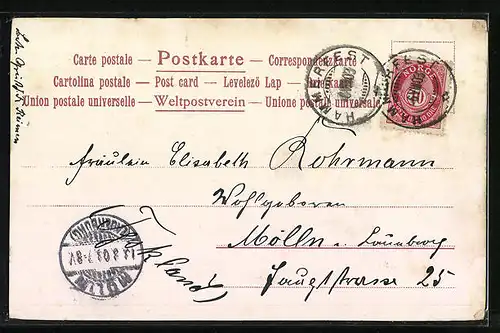 Carte postale — Postkarte — Correspondenzkarte
Cartolina postale — Post card — Levelező Lap —
Union postale universelle — Weltpostverein — Unione postale universale
HAMMERFEST
HAMMERFEST
NORGE
Fräulein Elisabeth Rohrmann
Wohlgeboren
Mölln i. Lauenburg
Hauptstrasse 25
(Tyskland)
MÖLLN
(LAUENBURG)